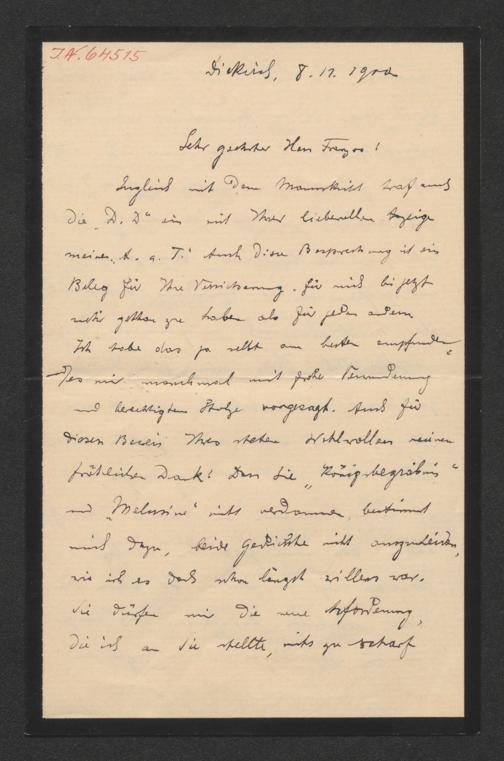 I.N. 64515
Diekirch, 8. 11. 1900
Sehr geehrter Herr Franzos!
Zugleich mit dem Manuskript traf auch
die „D. D“ ein mit Ihrer liebevollen Anzeige
meines „A. a. T.“ Auch diese Besprechung ist ein
Beleg für Ihre Versicherung, für mich bis jetzt
mehr gethan zu haben als für jeden andern.
Ich habe das ja selbst am besten empfunden,
es mir manchmal mit froher Verwunderung
und berechtigtem Stolze vorgesagt. Auch für
diesen Beweis Ihres steten Wohlwollens meinen
fröhlichen Dank! Dass Sie „Königsbegräbnis“
und „Melusine“ nicht verdammen, bestimmt
mich dazu, beide Gedichte nicht auszuscheiden,
wie ich es doch schon längst willens war.
Sie dürfen mir die neue Anforderung,
die ich an Sie stellte, nicht zu scharf